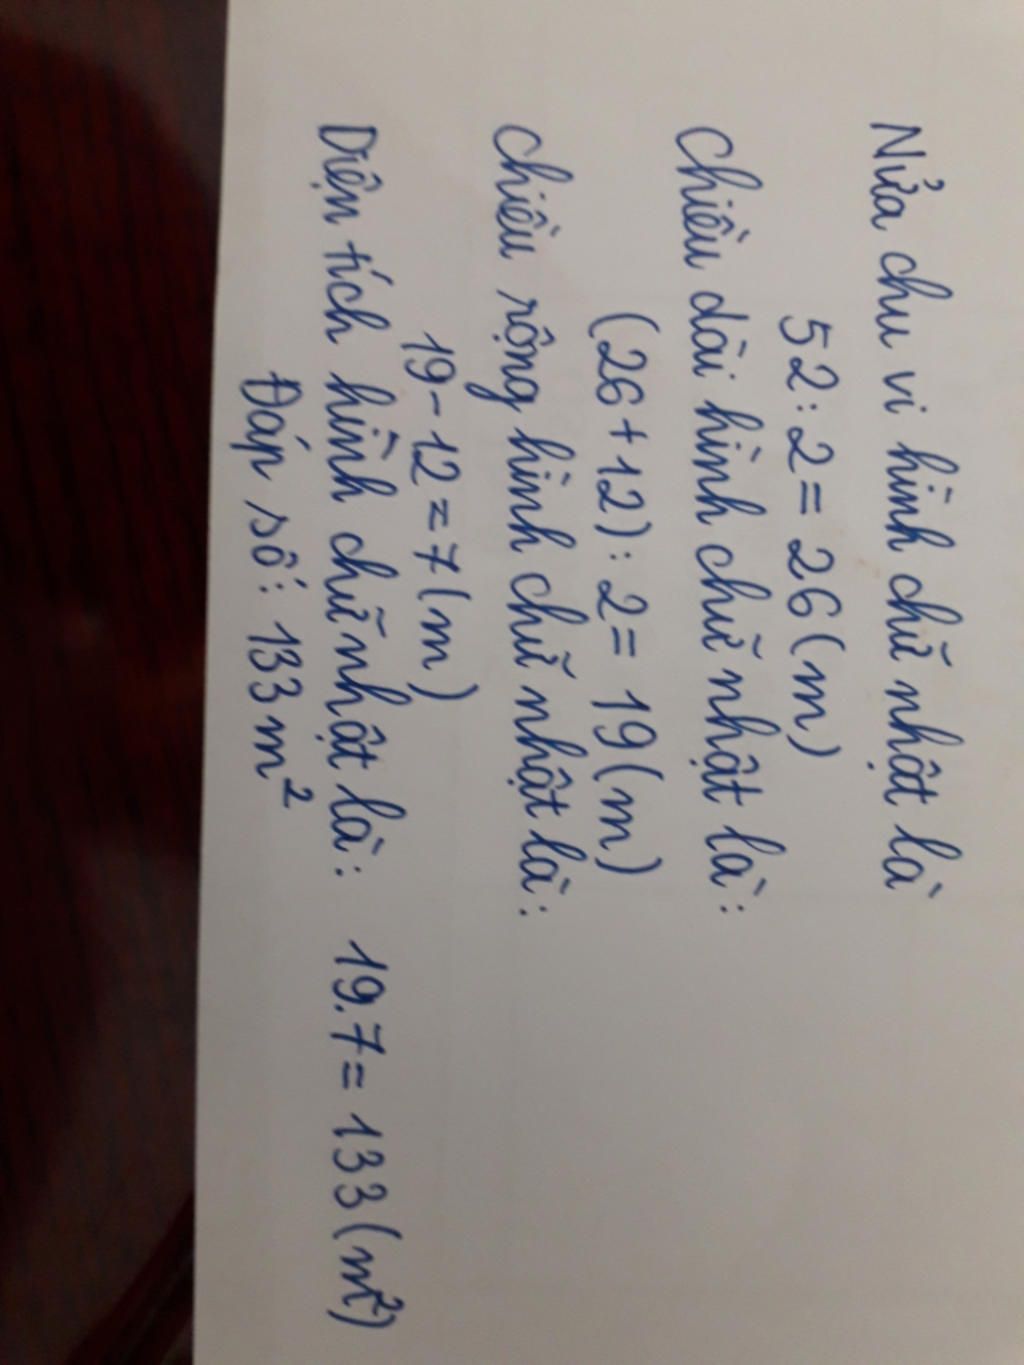 Nửa chu vi hình chữ nhật là
52:2=26(m)
Chiều dài hình chữ nhật là:
(26+12):2= 19(m)
Chiều rộng hình chữ nhật là:
19-12=7(m)
Diện tích hình chữ nhật là: 19.7= 133(m²)
Đáp số: 133m²